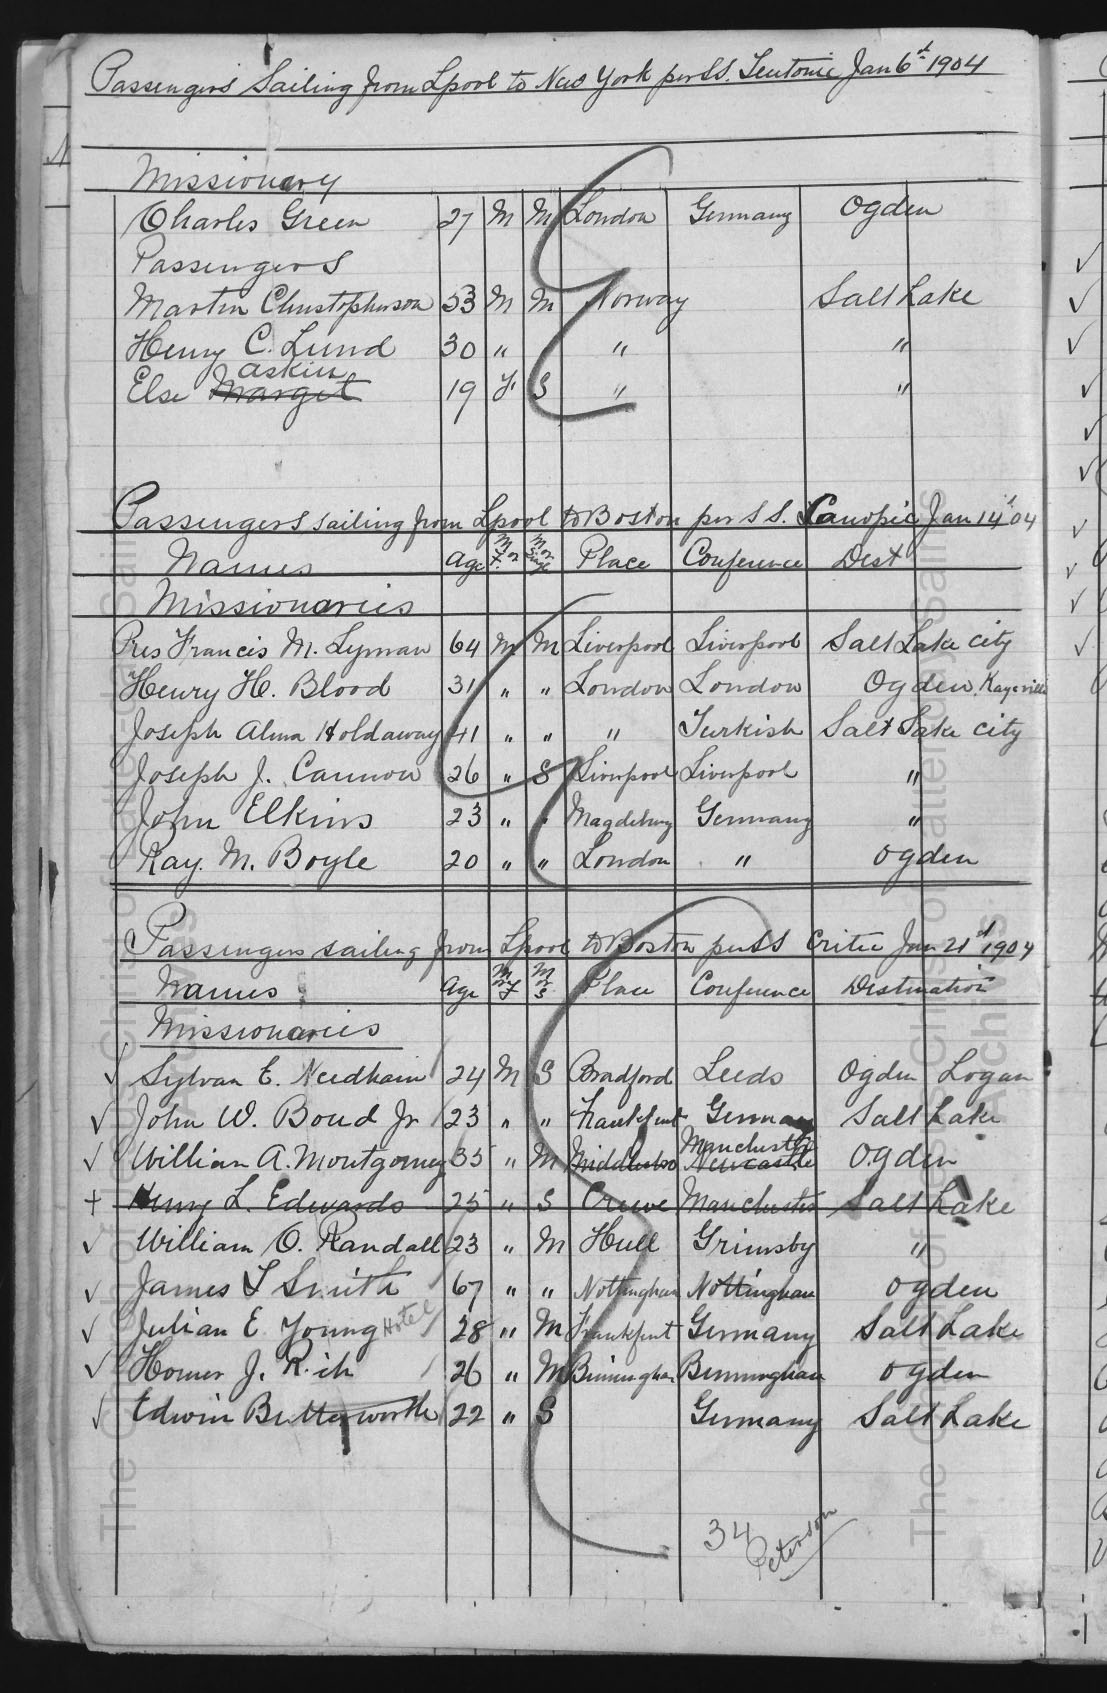 Passengers Sailing from Lpool to New York per S.S. Teutonic Jan 6th 1904
Missionary
Charles Green 27 M M London Germany Ogden
Passengers
Martin Christopherson 53 M M Norway Salt Lake
Henry C. Lund 30 " " "
askin
Else Margit 19 F S " "
Passengers sailing from Lpool to Boston per S S. Canopic Jan 14th 04
Names Age M or F. M or Single Place Conference Dest
Missionaries
Pres Francis M. Lyman 64 M M Liverpool Liverpool Salt Lake city
Henry H. Blood 31 " " London London Ogden, Kaysville
Joseph Alma Holdaway 41 " " " Turkish Salt Lake city
Joseph J. Cannon 26 " S Liverpool Liverpool "
John Elkins 23 " " Magdeburg Germany "
Ray. M. Boyle 20 " " London " Ogden
Passengers sailing from Lpool to Boston per SS Cretic Jan 21st 1904
Names Age M or F M or S Place Conference Destination
Missionaries
✓ Sylvan E. Needham 24 M S Bradford Leeds Ogden Logan
✓ John W. Boud Jr 23 " " Frankfurt Germany Salt Lake
Manchester
✓ William A. Montgomery 35 " M Middlesbro Newcastle Ogden
+ Henry L. Edwards 25 " S Crewe Manchester Salt Lake
✓ William O. Randall 23 " M Hull Grimsby "
✓ James T Smith 67 " " Nottingham Nottingham Ogden
✓ Julian E. Young Hotel 28 " M Frankfurt Germany Salt Lake
✓ Homer J. Rich 26 " M Birmingham Birmingham Ogden
✓ Edwin Butterworth 22 " S Germany Salt Lake
34
Peterson